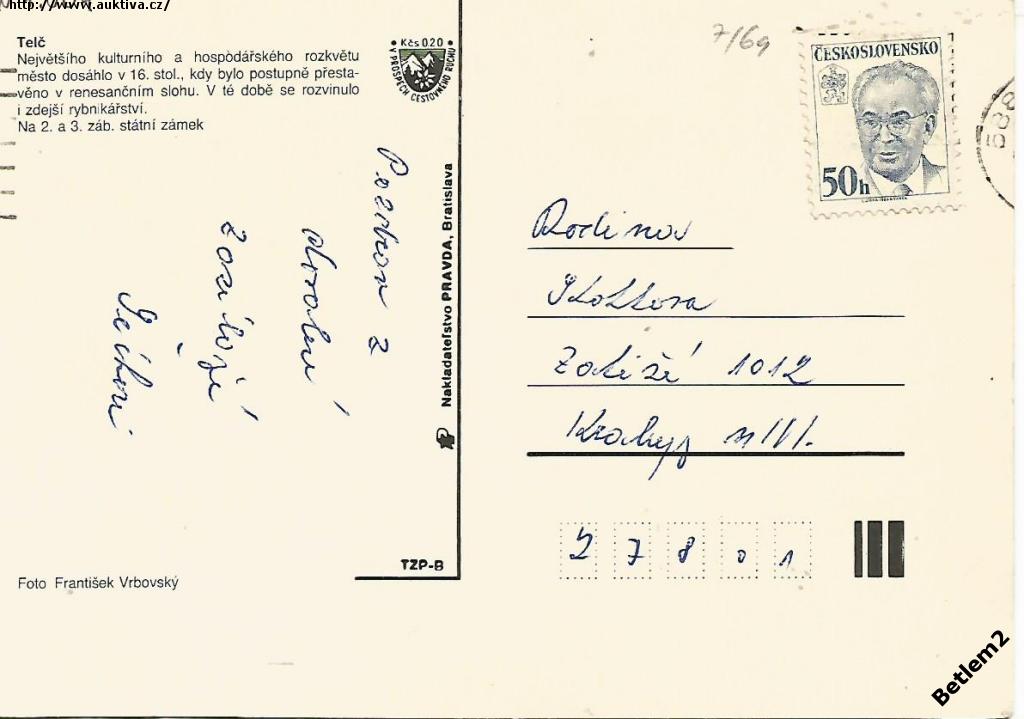 http://www.auktiva.cz/
Telč
Největšího kulturního a hospodářského rozkvětu
město dosáhlo v 16. stol., kdy bylo postupně přesta-
věno v renesančním slohu. V té době se rozvinulo
i zdejší rybnikářství.
Na 2. a 3. záb. státní zámek
• Kčs 0.20 •
V PROSPĚCH CESTOVNÉHO RUCHU
7/69
ČESKOSLOVENSKO
50h
588
Pozdrav z
zasílají
Nakladateľstvo PRAVDA, Bratislava
TZP-B
Foto František Vrbovský
Rodina
Zátiší 1012
Kralupy n/Vl.
27801
Betlem2